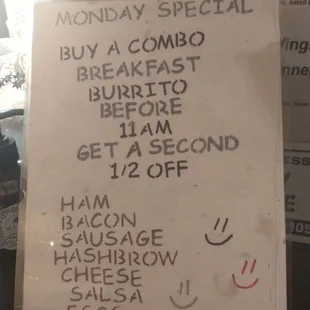 MONDAY SPECIAL
BUY A COMBO
BREAKFAST
BURRITO
BEFORE
11AM
GET A SECOND
1/2 OFF
HAM
BACON
SAUSAGE
HASHBROW
CHEESE
SALSA
EGGS